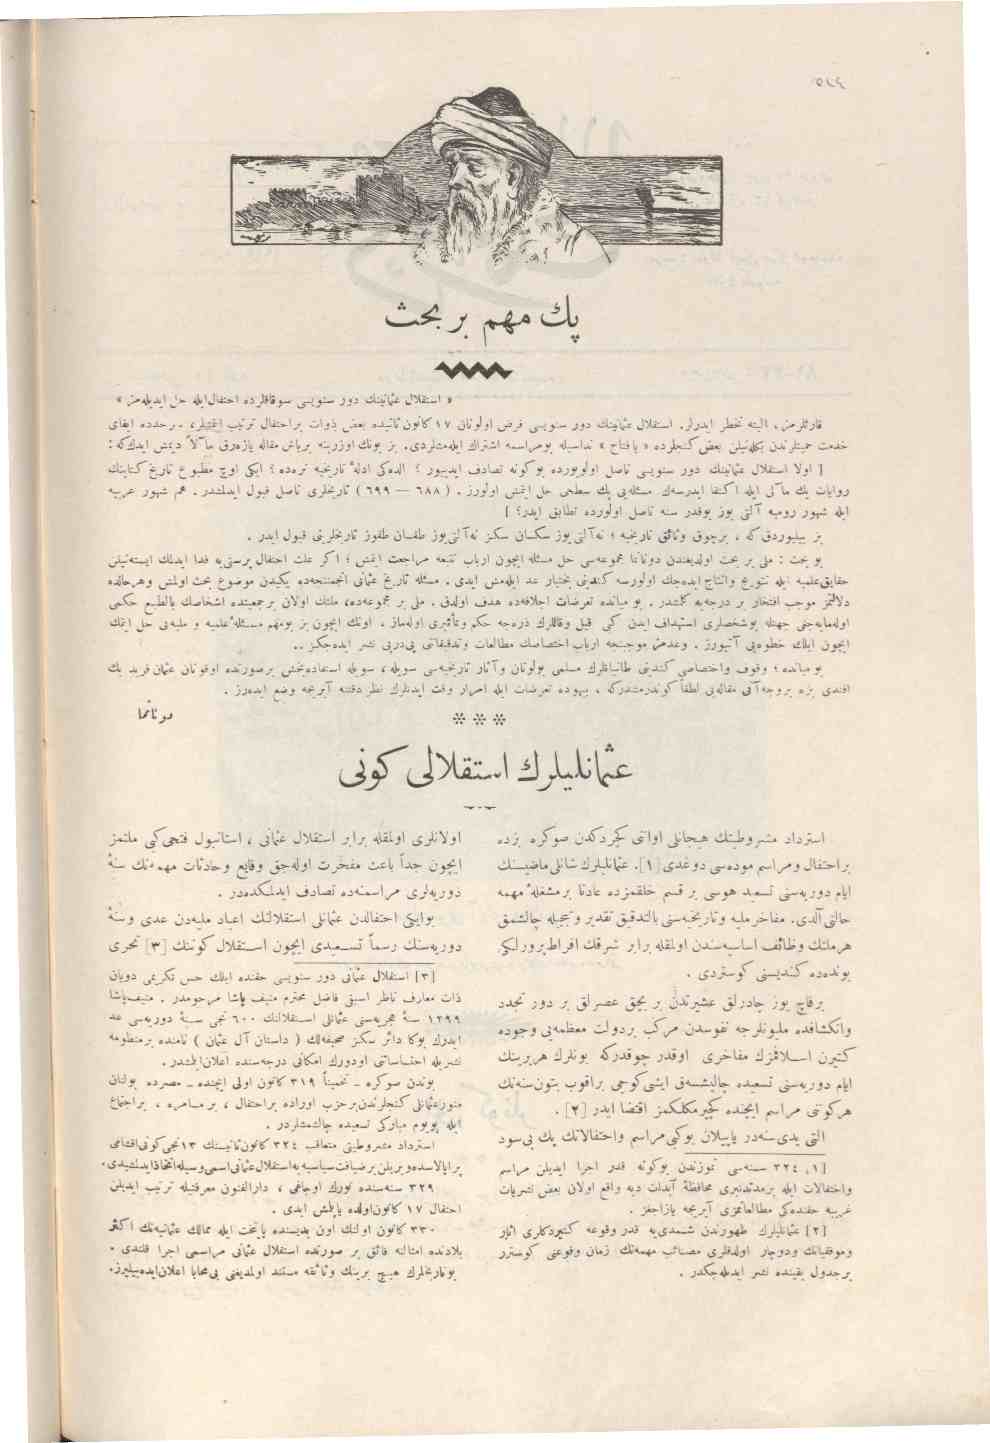 پك مهم بر بحث
« استقلال عثمانینك دور سنویسی سوقاقلرده احتفال‌ایله حل ایدیله‌مز »
قارئلرمز، البته تخطر ایدرلر. استقلال عثمانینك دور سنویسی فرض اولونان ١٧ كانون‌ثانیده بعض ذوات براحتفال ترتیب ایتدیلر،
خدمت حمیتلرندن بكله‌نیلن بعض كنجلرده « یافتاح » نداسیله بومراسمه اشتراك ایله‌مشلردی. بز بونك اوزرینه برباش مقاله یازه‌رق مآلاً دیمش ایدك‌كه :
[ اولا استقلال عثمانینك دور سنویسی ناصل اولویورده بوكونه تصادف ایدییور ؟ الده‌كی ادلهٔ تاریخیه نره‌ده ؟ ایكی اوچ مطبوع تاریخ كتابنك
روایات یك مآلی ایله اكتفا ایدرسه‌ك مسئله‌یی پك سطحی حل ایتمش اولورز . ( ٦٨٨ — ٦٩٩ ) تاریخلری ناصل قبول ایدلمشدر . هم شهور عربیه
ایله شهور رومیه آلتی یوز بوقدر سنه ناصل اولورده تطابق ایدر؟ ]
بز بیلیوردق‌كه ، برچوق وثائق تاریخیه ؛ نه آلتی‌یوز سكسان سكز نه آلتی‌یوز طقسان طقوز تاریخلرینی قبول ایدر .
بو بحث : ملی بر بحث اولدیغندن دوناننما مجموعه‌سی حل مسئله ایچون ارباب تتبعه مراجعت ایتمش ؛ اكر علت احتفال پرستی‌یه فدا ایدلك ایسته‌نیلن
حقایق‌علمیه ایله تتویج وانتاج ایده‌جك اولورسه كندینی بختیار عد ایله‌مش ایدی . مسئله تاریخ عثمانی انجمننجه‌ده یكیدن موضوع بحث اولمش وهرحالده
دلالتمز موجب افتخار بر درجه‌یه كلمشدر . بو میانده تعرضات اجلافه‌ده هدف اولدق . ملی بر مجموعه‌ده، ملتك اولان برجمعیتده اشخاصك بالطبع حكمی
اوله‌مایه‌جغی جهتله بوشخصلری استهداف ایدن كمی قیل وقاللرك ذره‌جه حكم وتأثیری اوله‌ماز . اونك ایچون بز بومهم مسئلهٔ علمیه و ملیه‌یی حل ایتمك
ایچون ایلك خطوه‌یی آتیورز . وعدمز موجبنجه ارباب اختصاصك مطالعات وتدقیقاتنی پی‌درپی نشر ایده‌جكز ..
بو میانده ؛ وقوف واختصاصی كندینی طانیانلرك مسلمی بولونان وآثار تاریخیه‌سی سویله‌، سویله استفاده‌بخش برصورتده اوقونان عثمان فرید بك
افندی بزه بروجه‌آتی مقاله‌یی لطفاً كوندرمشدركه ، بیهوده تعرضات ایله امرار وقت ایدنلرك نظر دقتنه آیریجه وضع ایده‌رز .
دونانما
عثمانلیلرك استقلالی كونی
استرداد مشروطیتك هیجانلی اوانی كچردكدن صوكره بزده
براحتفال ومراسم موده‌سی دوغدی [١]. عثمانلیلرك شانلی ماضیسنك
ایام دوریه‌سنی تسعید هوسی بر قسم خلقمزده عادتا برمشغلهٔ مهمه
حالنی آلدی. مفاخر ملیه وتاریخیه‌سنی بالتدقیق تقدیر وتبجیله چالشمق
هرملتك وظائف اساسیه‌سندن اولمقله برابر شرقك افراط‌پرورلكی
بونده‌ده كندیسنی كوستردی .
برقاچ یوز چادرلق عشیرتدن بر بچق عصرلق بر دور تجدد
وانكشافده ملیونلرجه نفوسدن مركب بردولت معظمه‌یی وجوده
كتیرن اسلافمزك مفاخری اوقدر چوقدركه بونلرك هربرینك
ایام دوریه‌سنی تسعیده چالیشسه‌ق ایشی‌كوجی براقوب بتون‌سنه‌نك
هركونی مراسم ایچنده كچیرمكلكمز اقتضا ایدر [٢] .
التی یدی‌سنه‌در یاپیلان بوكبی‌مراسم واحتفالاتك پك بی‌سود
[١] ٣٢٤ سنه‌سی تموزندن بوكونه قدر اجرا ایدیلن مراسم
واحتفالات ایله برمدتدنبری محافظهٔ آبدات دیه واقع اولان بعض نشریات
غریبه حقنده‌كی مطالعاتمزی آیریجه یازاجغز .
[٢] عثمانلیلرك ظهورندن شمدی‌یه قدر وقوعه كتیردكلری آثار
وموفقیاتك ودوچار اولدقلری مصائب مهمه‌نك زمان وقوعنی كوسترر
برجدول یقینده نشر ایدیله‌جكدر .
اولانلری اولمقله برابر استقلال عثمانی ، استانبول فتحی‌كبی ملتمز
ایچون جداً باعث مفخرت اوله‌جق وقایع وحادثات مهمه‌نك سنهٔ
دوریه‌لری مراسمنه‌ده تصادف ایدلمكده‌در .
بوایكی احتفالدن عثمانلی استقلالنك اعیاد ملیه‌دن عدی وسنهٔ
دوریه‌سنك رسماً تسعیدی ایچون استقلال كوننك [٣] تحری
[٣] استقلال عثمانی دور سنویسی حقنده ایلك حس تكریمی دویان
ذات معارف ناظر اسبقی فاضل محترم منیف پاشا مرحومدر . منیف‌پاشا
١٢٩٩ سنهٔ هجریه‌سنی عثمانلی استقلالنك ٦٠٠ نجی سنهٔ دوریه‌سی عد
ایدرك بوكا دائر سكز صحیفه‌لك ( داستان آل عثمان ) نامنده برمنظومه
نشریله احتساساتنی اودورك امكانی درجه‌سنده اعلان‌ایتمشدر .
بوندن صوكره - تخمیناً ٣١٩ كانون اولی ایچنده - مصرده بولنان
منور عثمانلی كنجلرندن برحزب اوراده براحتفال ، برمسامره ، براجتماع
ایله بویوم مباركی تسعیده چالشمشلردر .
استرداد مشروطیتی متعاقب ٣٢٤ كانون‌ثانیسنك ١٣نجی كونی‌اقشامی
پراپالاسده‌ویریلن برضیافت‌سیاسیه یه‌استقلال‌عثمانی‌اسمی‌وسیله‌اتخاذایدلمشیدی.
٣٢٩ سنه‌سنده تورك اوجاغی ، دارالفنون معرفتیله ترتیب ایدیلن
احتفال ١٧ كانون‌اولده یاپلمش ایدی .
٣٣٠ كانون اولنك اون یدیسنده پایتخت ایله ممالك عثمانیه‌نك اكثر
بلادنده امثالنه فائق بر صورتده استقلال عثمانی مراسمی اجرا قلندی .
بوتاریخلرك هیچ برینك وثائقه مستند اولمدیغنی بی‌محابا اعلان‌ایده‌بیلیرز.